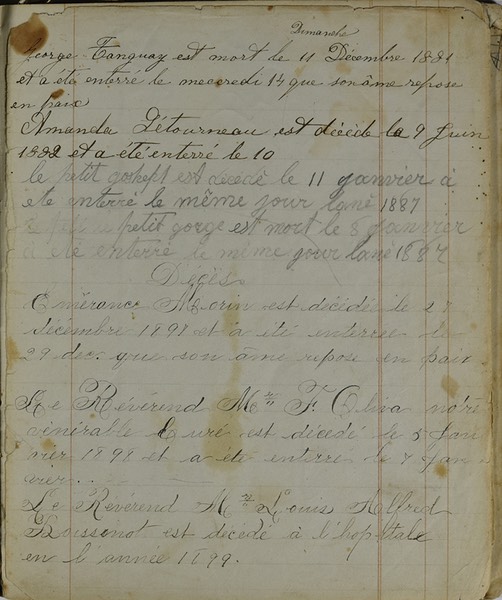 Dimanche
George Tanguay est mort le 11 Décembre 1881
et a été enterré le mecredi 14 que son âme repose
en paix
Amanda Létourneau est décédé la 9 Juin
1882 et a été enterré le 10
le petit est décédé le 11 janvier à
éte enterré le même jour lané 1887
petit gorge est mort le 8 janvier
a éte enterré le même jour lané 1887
Décès.
Émérance Morin est décédée le 27
décembre 1897 et a été enterrée le
29 dec. que son âme repose en paix
Le Révérend Mr. F. Oliva notre
vénérable Curé est décédé le 5 Jan
vier 1898 et a été enterré le 7 Jan
vier.
Le Revérend Mr. Louis Alfred
Boissonot est décédé à l'hopitale
en l'année 1899.